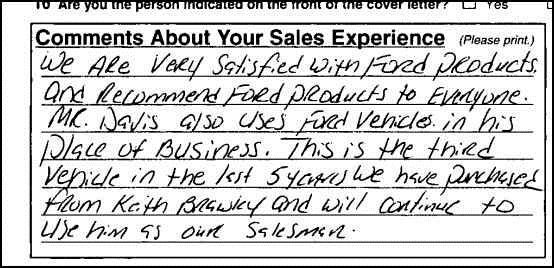 10 Are you the person indicated on the front of the cover letter? ☐ Yes
Comments About Your Sales Experience (Please print.)
We Are Very Satisfied with Ford Products
And Recommend Ford Products to Everyone.
MR. Davis also uses Ford Vehicles in his
place of Business. This is the third
Vehicle in the last 5 years we have purchased
from Keith Brawley and will continue to
use him as our Salesman.